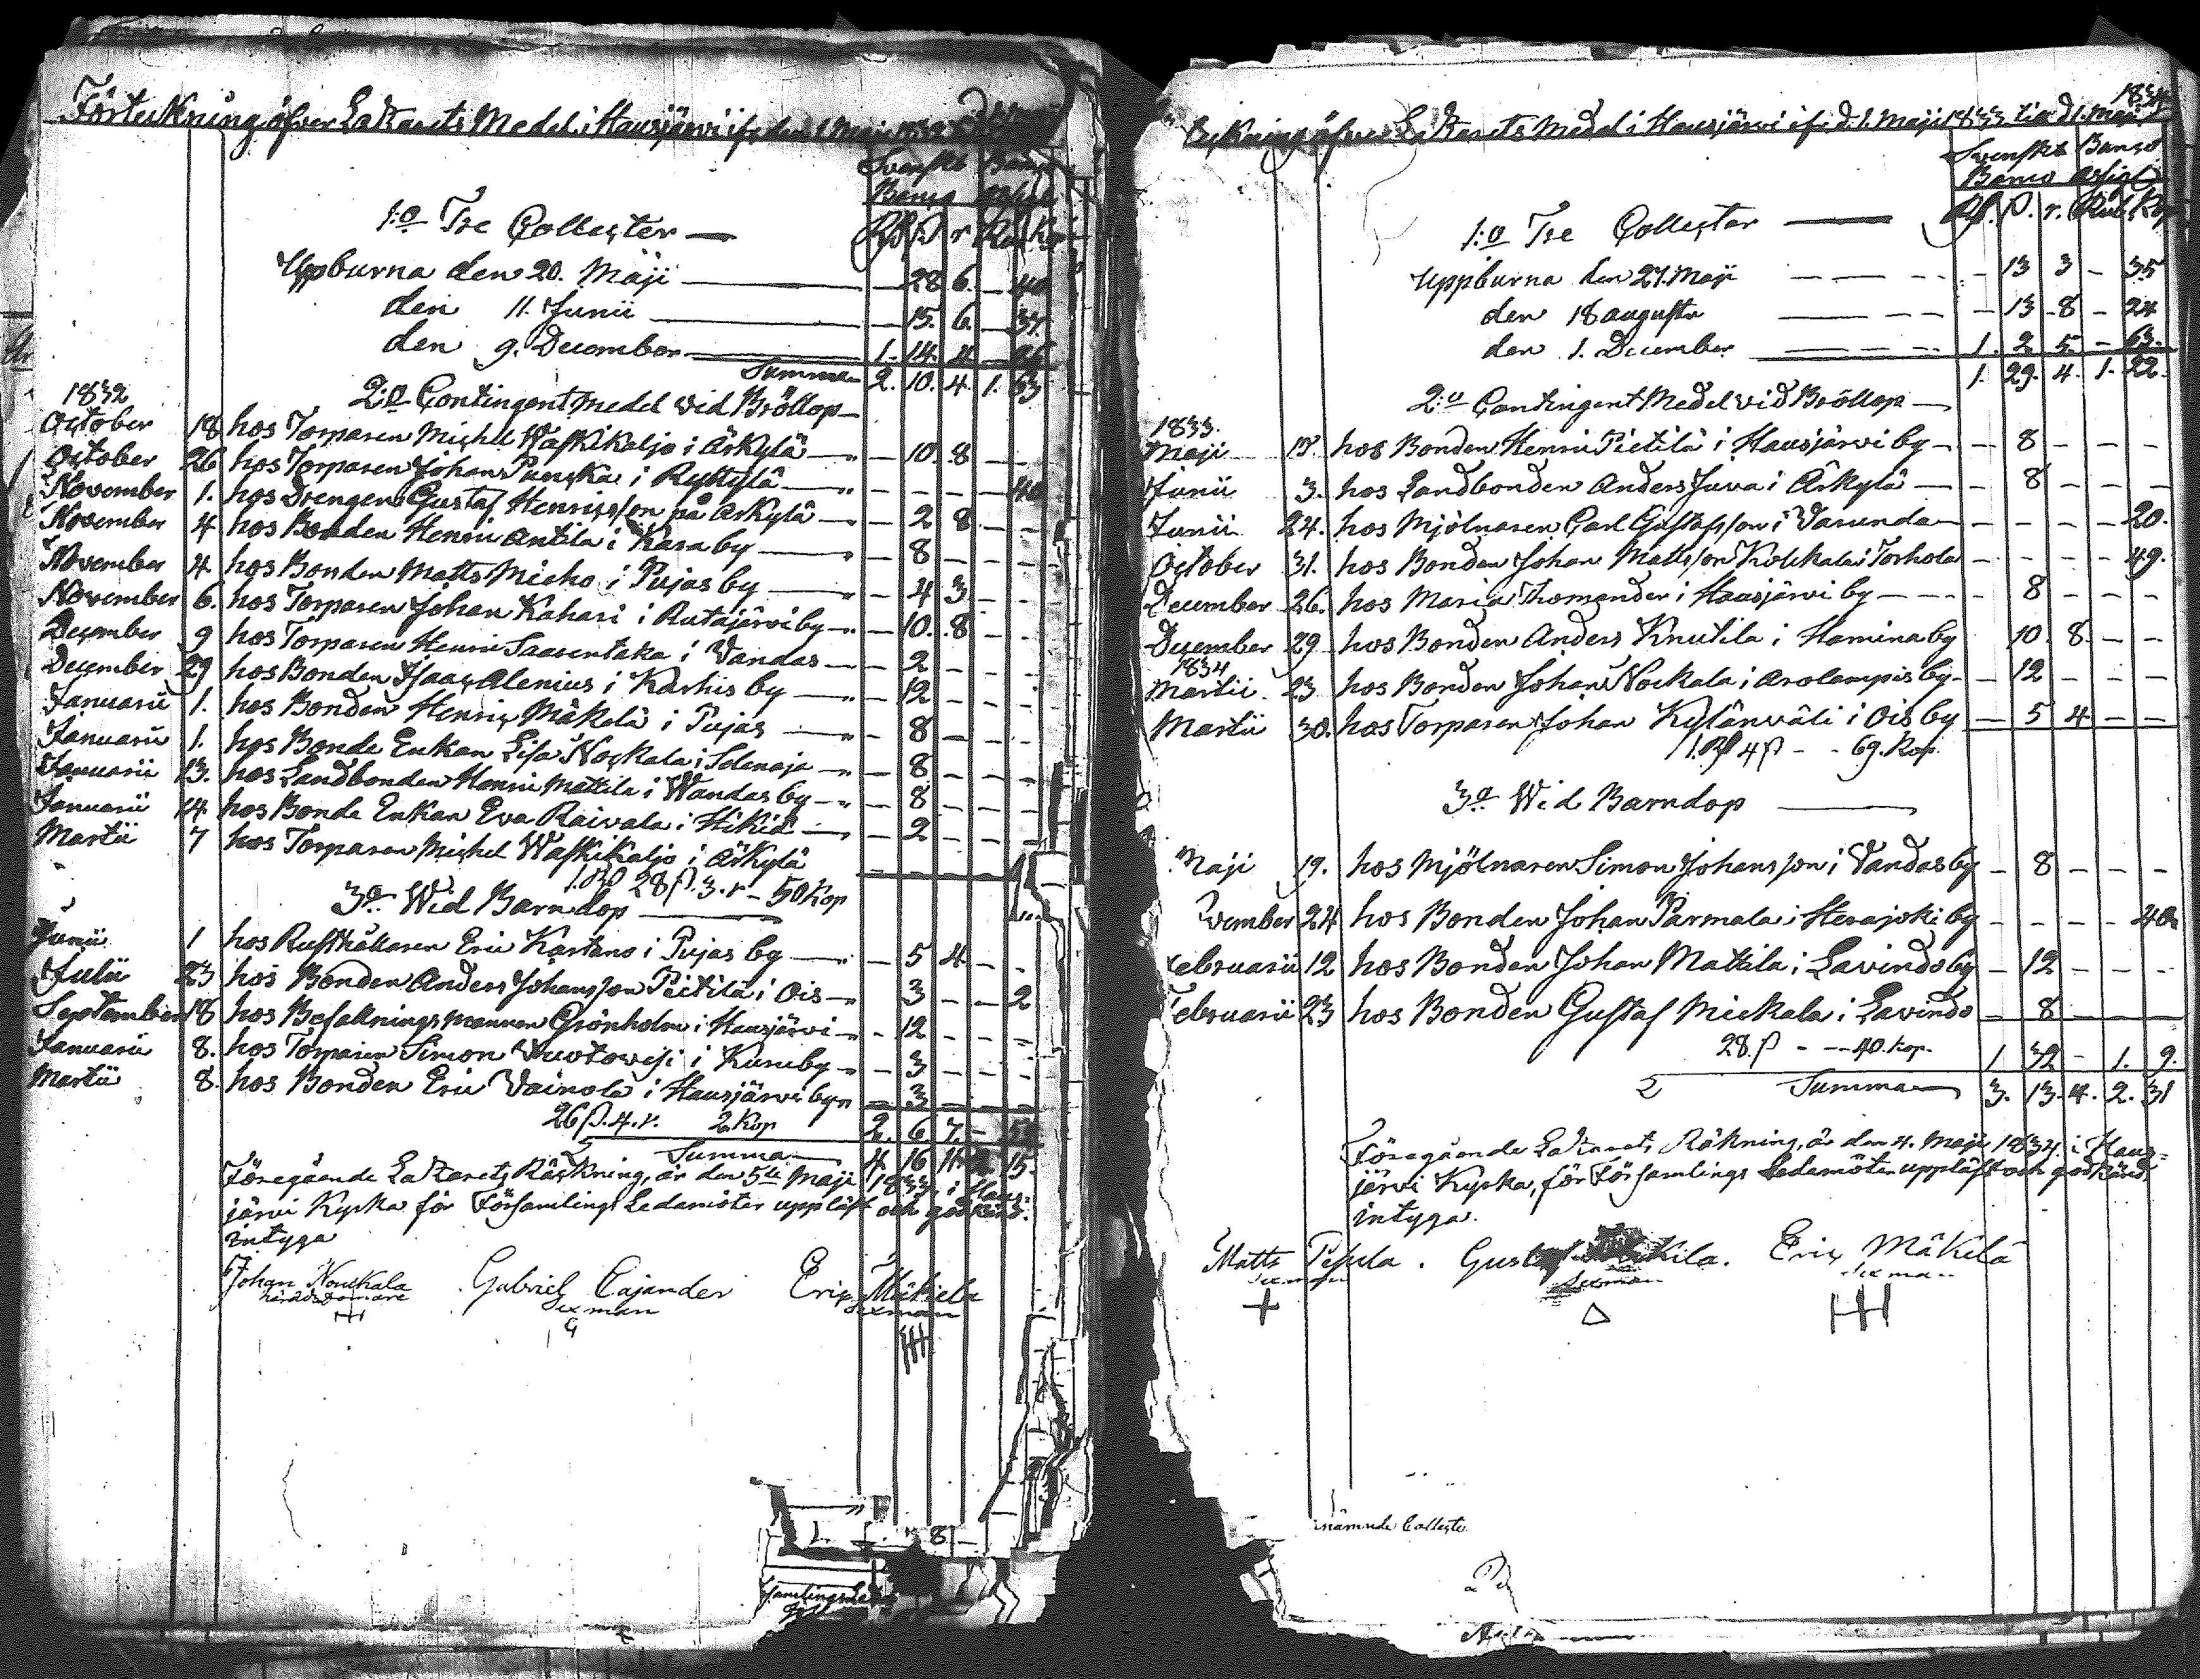 Förteckning öfver Lazarets Medel i Hausjärvi ifr. den 1. Maji
Svenskt
Banco
1:o Tre Collecter —
Rd. ß. r. Rub. Kop.
Uppburna den 20. Maji — 28 6. — 40
den 11. Junii — 15. 6. — 37.
den 9. December 1. 14. 4 —
Summa 2. 10. 4. 1. 53
2:o Contingent Medel vid Bröllop —
1832
October 18 hos Torparen Michel Waskikaljo i Äskylä — 10. 8 —
October 26 hos Torparen Johan i Ryttylä — — — — 40
November 1. hos Drengen Gustaf Henricsson på Äskylä — 2 8. —
November 4 hos Bonden Henric Antila i Karaby — 8 — —
November 4. hos Bonden Matts Mieho i Pujas by — 4 3 —
November 6. hos Torparen Johan Kahari i Rutajärvi by — 10. 8 —
December 9 hos Torparen Henric i Vandas — 2 — —
December 29 hos Bonden Isaac Alenius i Karhis by — 12 — —
Januarii 1. hos Bonden Henric Mäkelä i Pujas — 8 — —
Januarii 1. hos Bonde Enkan Lisa Nockala i — 8 — —
Januarii 13. hos Landbonden Henric Mattila i Wandas by — 8 — —
Januarii 14. hos Bonde Enkan Eva Raivala i Hikiä — 2 — —
Martii 7 hos Torparen Michel Waskikaljo i Äskylä
1. Rd 28 ß. 3. r — 50 Kop
3:o Wid Barndop —
Junii 1 hos Rusthållaren Eric Kartano i Pujas by — 5 4 —
Julii 23 hos Bonden Anders Johansson Pietilä i Ois — 3 — — 2
September 18 hos Befallningsmannen Grönholm i Hausjärvi — 12 — —
Januarii 8. hos Torparen Simon i Kuruby — 3 — —
Martii 8. hos Bonden Eric Vainola i Hausjärvi by — 3 — —
26 ß. 4. r. 2 Kop 2. 6. 7. —
Summa 4. 16 11. 15.
Föregående Lazarets Räckning, är den 5te Maji 1833, i Haus-
järvi Kyrka för Församlings Ledamöter uppläst och godkänd.
intyga
Johan Nockala Gabriel Cajander Eric Mäkelä
häradsdomare Sexman Sexman
Räkning öfver Lazarets Medel i Hausjärvi ifr. d. 1. Maji 1833 till d. 1. Maji 1834
Svenskt Banco
Banco Assign
Rd. ß. r. Rub. Kop
1:o Tre Collecter —
Uppburna den 27. Maji — 13 3 — 35
den 18 augusti — 13 8 — 24
den 1. December 1. 2 5 — 63.
1. 29. 4. 1. 22.
2:o Contingent Medel vid Bröllop —
1833.
Maji 17. hos Bonden Henric Pietilä i Hausjärvi by — 8 — — —
Junii 3. hos Landbonden Anders Juva i Äskylä — 8 — — —
Junii 24. hos Mjölnaren Carl Gustafsson i Varunda — — — — 20.
October 31. hos Bonden Johan Mattsson Kolckala i Torhola — — — — 49.
December 26. hos Maria Thomander i Hausjärvi by — 8 — — —
December 29 hos Bonden Anders Knutila i Hamina by 10. 8. — —
1834
Martii 23 hos Bonden Johan Nockala i Arolampis by — 12 — — —
Martii 30. hos Torparen Johan Kylänväli i Ois by — 5 4 — —
1. Rd 4 ß — — 69. Kop.
3:o Wid Barndop —
Maji 19. hos Mjölnaren Simon Johansson i Vandas by — 8 — — —
vember 24 hos Bonden Johan Parmala i Herajoki by — — — — 40
ebruarii 12 hos Bonden Johan Mattila i Lavinds by — 12 — — —
Februarii 23 hos Bonden Gustaf Mickala i Lavinds — 8 — — —
28. ß — — 40. kop. 1 32 — 1. 9.
Summa 3. 13. 4. 2. 31
Föregående Lazarets Räkning, är den 4. Maji 1834. i Haus=
järvi Kyrka, för Församlings Ledamöter uppläst och godkänd,
intyga.
Matts Pesula. Gustaf kila. Eric Mäkelä
Sexman Sexman Sexman
+ △
nämnde Collecte
8